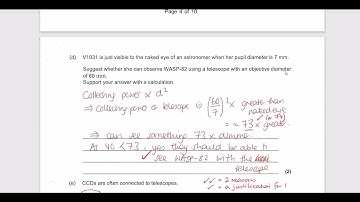 Page 4 of 10
(d) V1031 is just visible to the naked eye of an astronomer when her pupil diameter is 7 mm.
Suggest whether she can observe WASP-82 using a telescope with an objective diameter
of 60 mm.
Support your answer with a calculation.
Collecting power ∝ d²
⇒ collecting power of telescope is (60/7)² × greater than
naked eye
= ~ 73 × greater
⇒ can see something 73 × dimmer
At 40 < 73, yes they should be able to
see WASP-82 with the
telescope
(2)
(e) CCDs are often connected to telescopes.
✓✓ = 2 reasons
✓ = a justification for 1